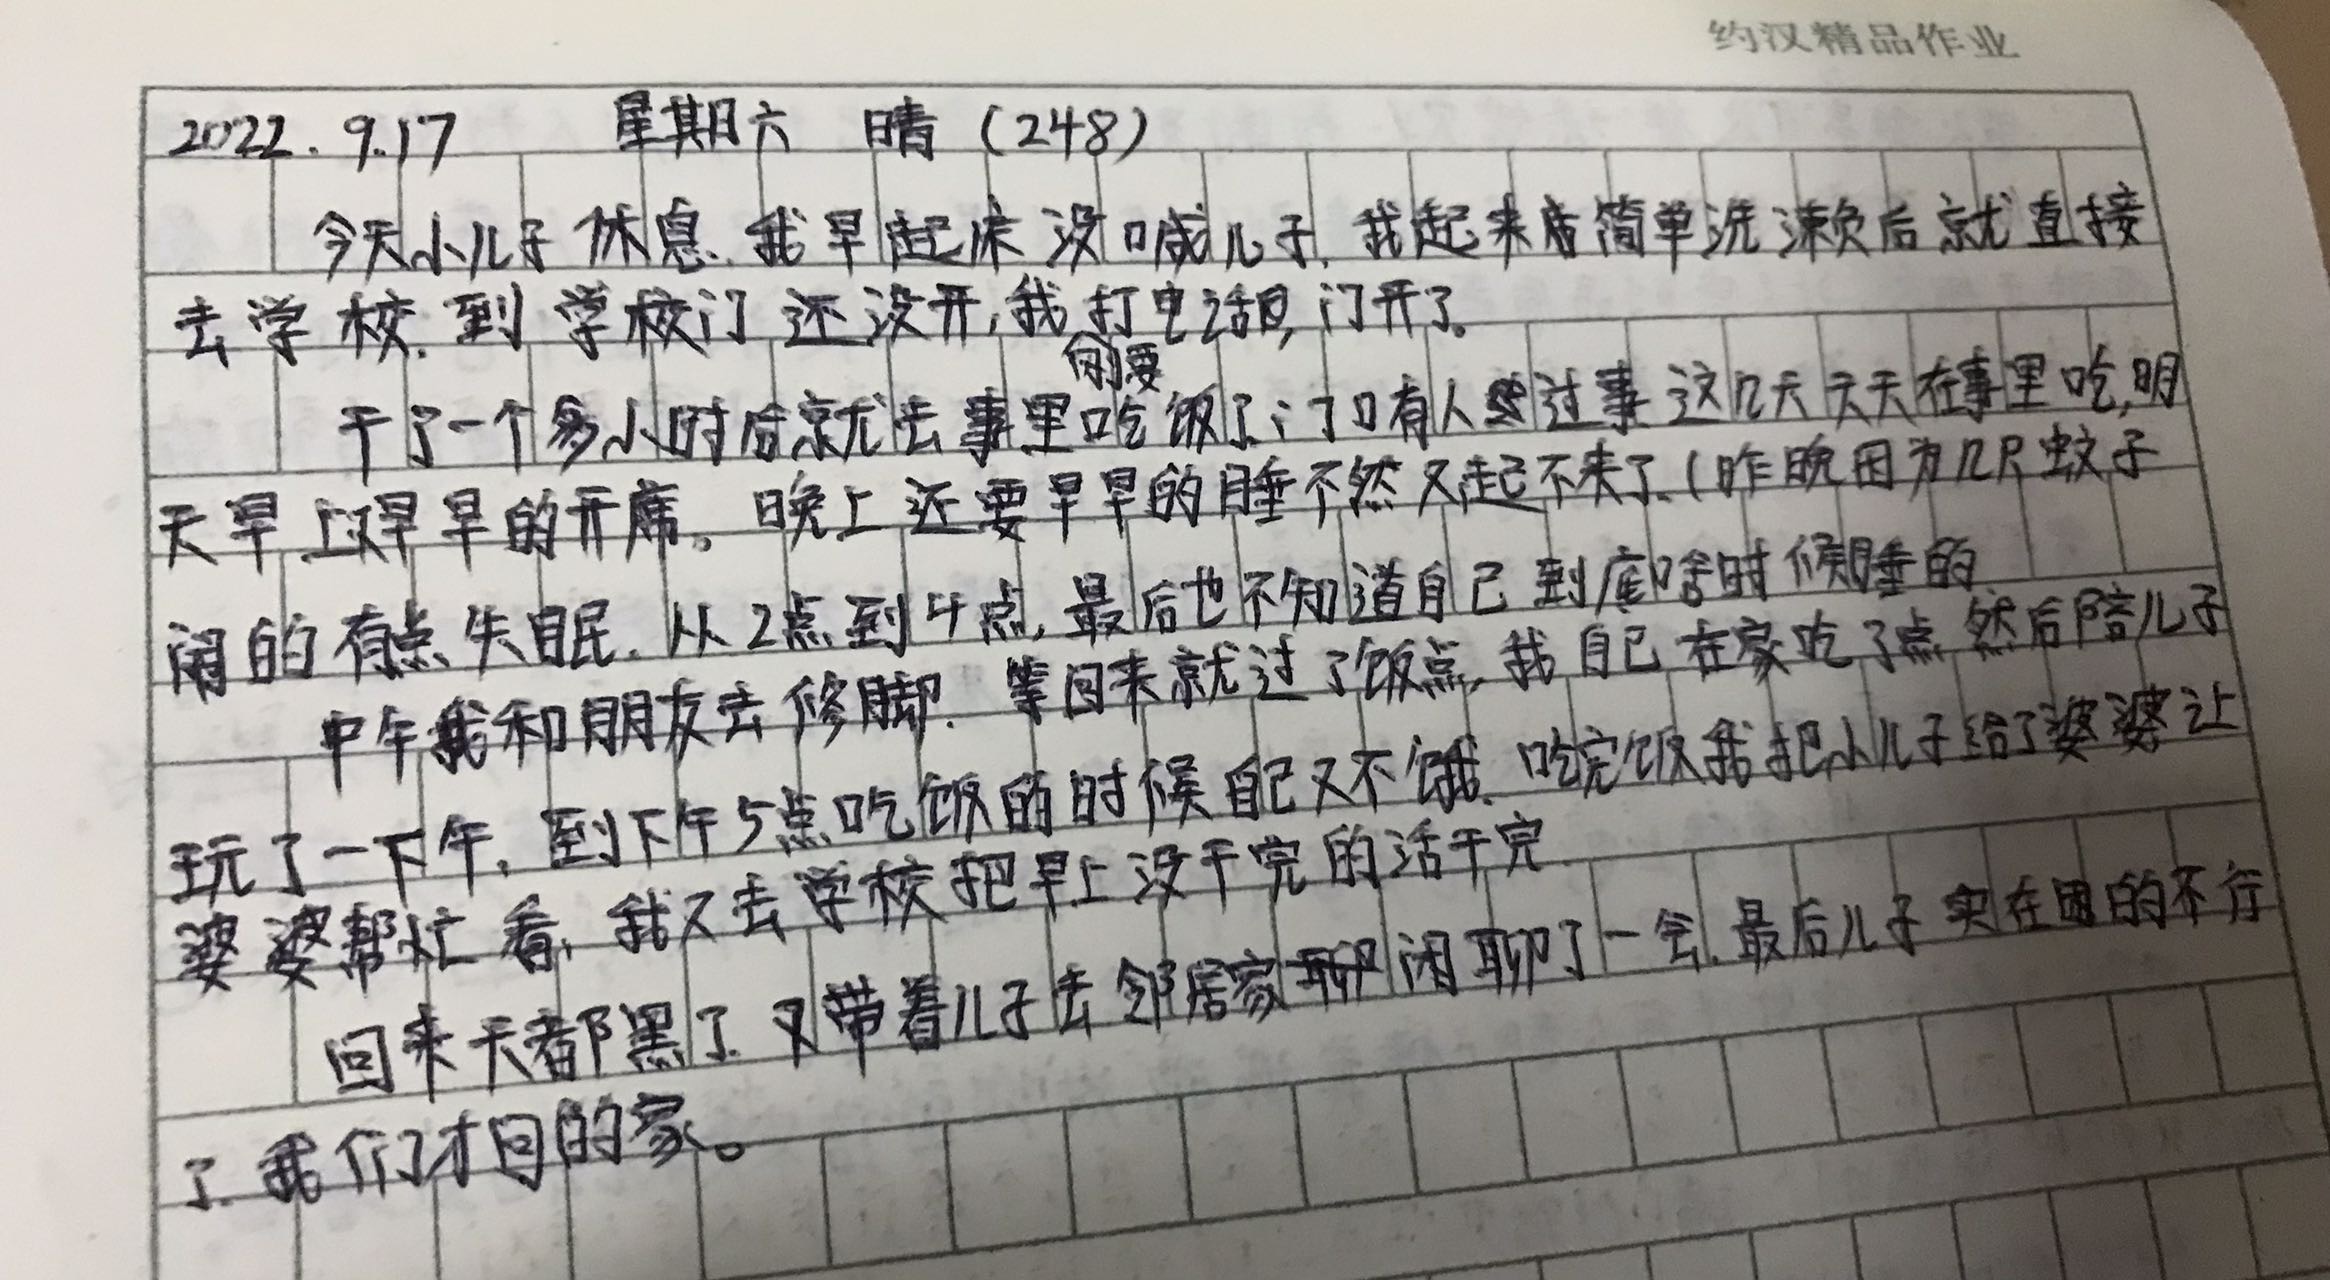 约汉精品作业
2022.9.17 星期六 晴(248)
今天小儿子休息.我早起床没喊儿子.我起来后简单洗漱后就直接
去学校.到学校门还没开,我打电话,门开了。
刚要
干了一个多小时后就去事里吃饭了门口有人过事这几天天天在事里吃,明
天早上又早早的开席。晚上还要早早的睡不然又起不来了.(昨晚因为几只蚊子
闹的有点失眠.从2点到4点,最后也不知道自己到底啥时候睡的
中午我和朋友去修脚.等回来就过了饭点,我自己在家吃了点然后陪儿子
玩了一下午.到下午5点吃饭的时候自己又不饿.吃完饭我把小儿子给了婆婆让
婆婆帮忙看,我又去学校把早上没干完的活干完.
回来天都黑了.又带着儿子去邻居家聊闲聊了一会.最后儿子实在困的不行
了.我们才回的家。